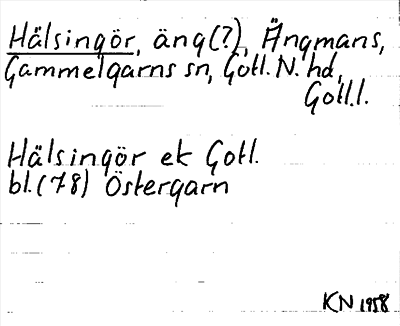 Hälsingör, äng(?), Ängmans,
Gammelgarns sn, Gotl. N. hd,
Gotl.l.
Hälsingör ek Gotl.
bl.(78) Östergarn
KN 1958